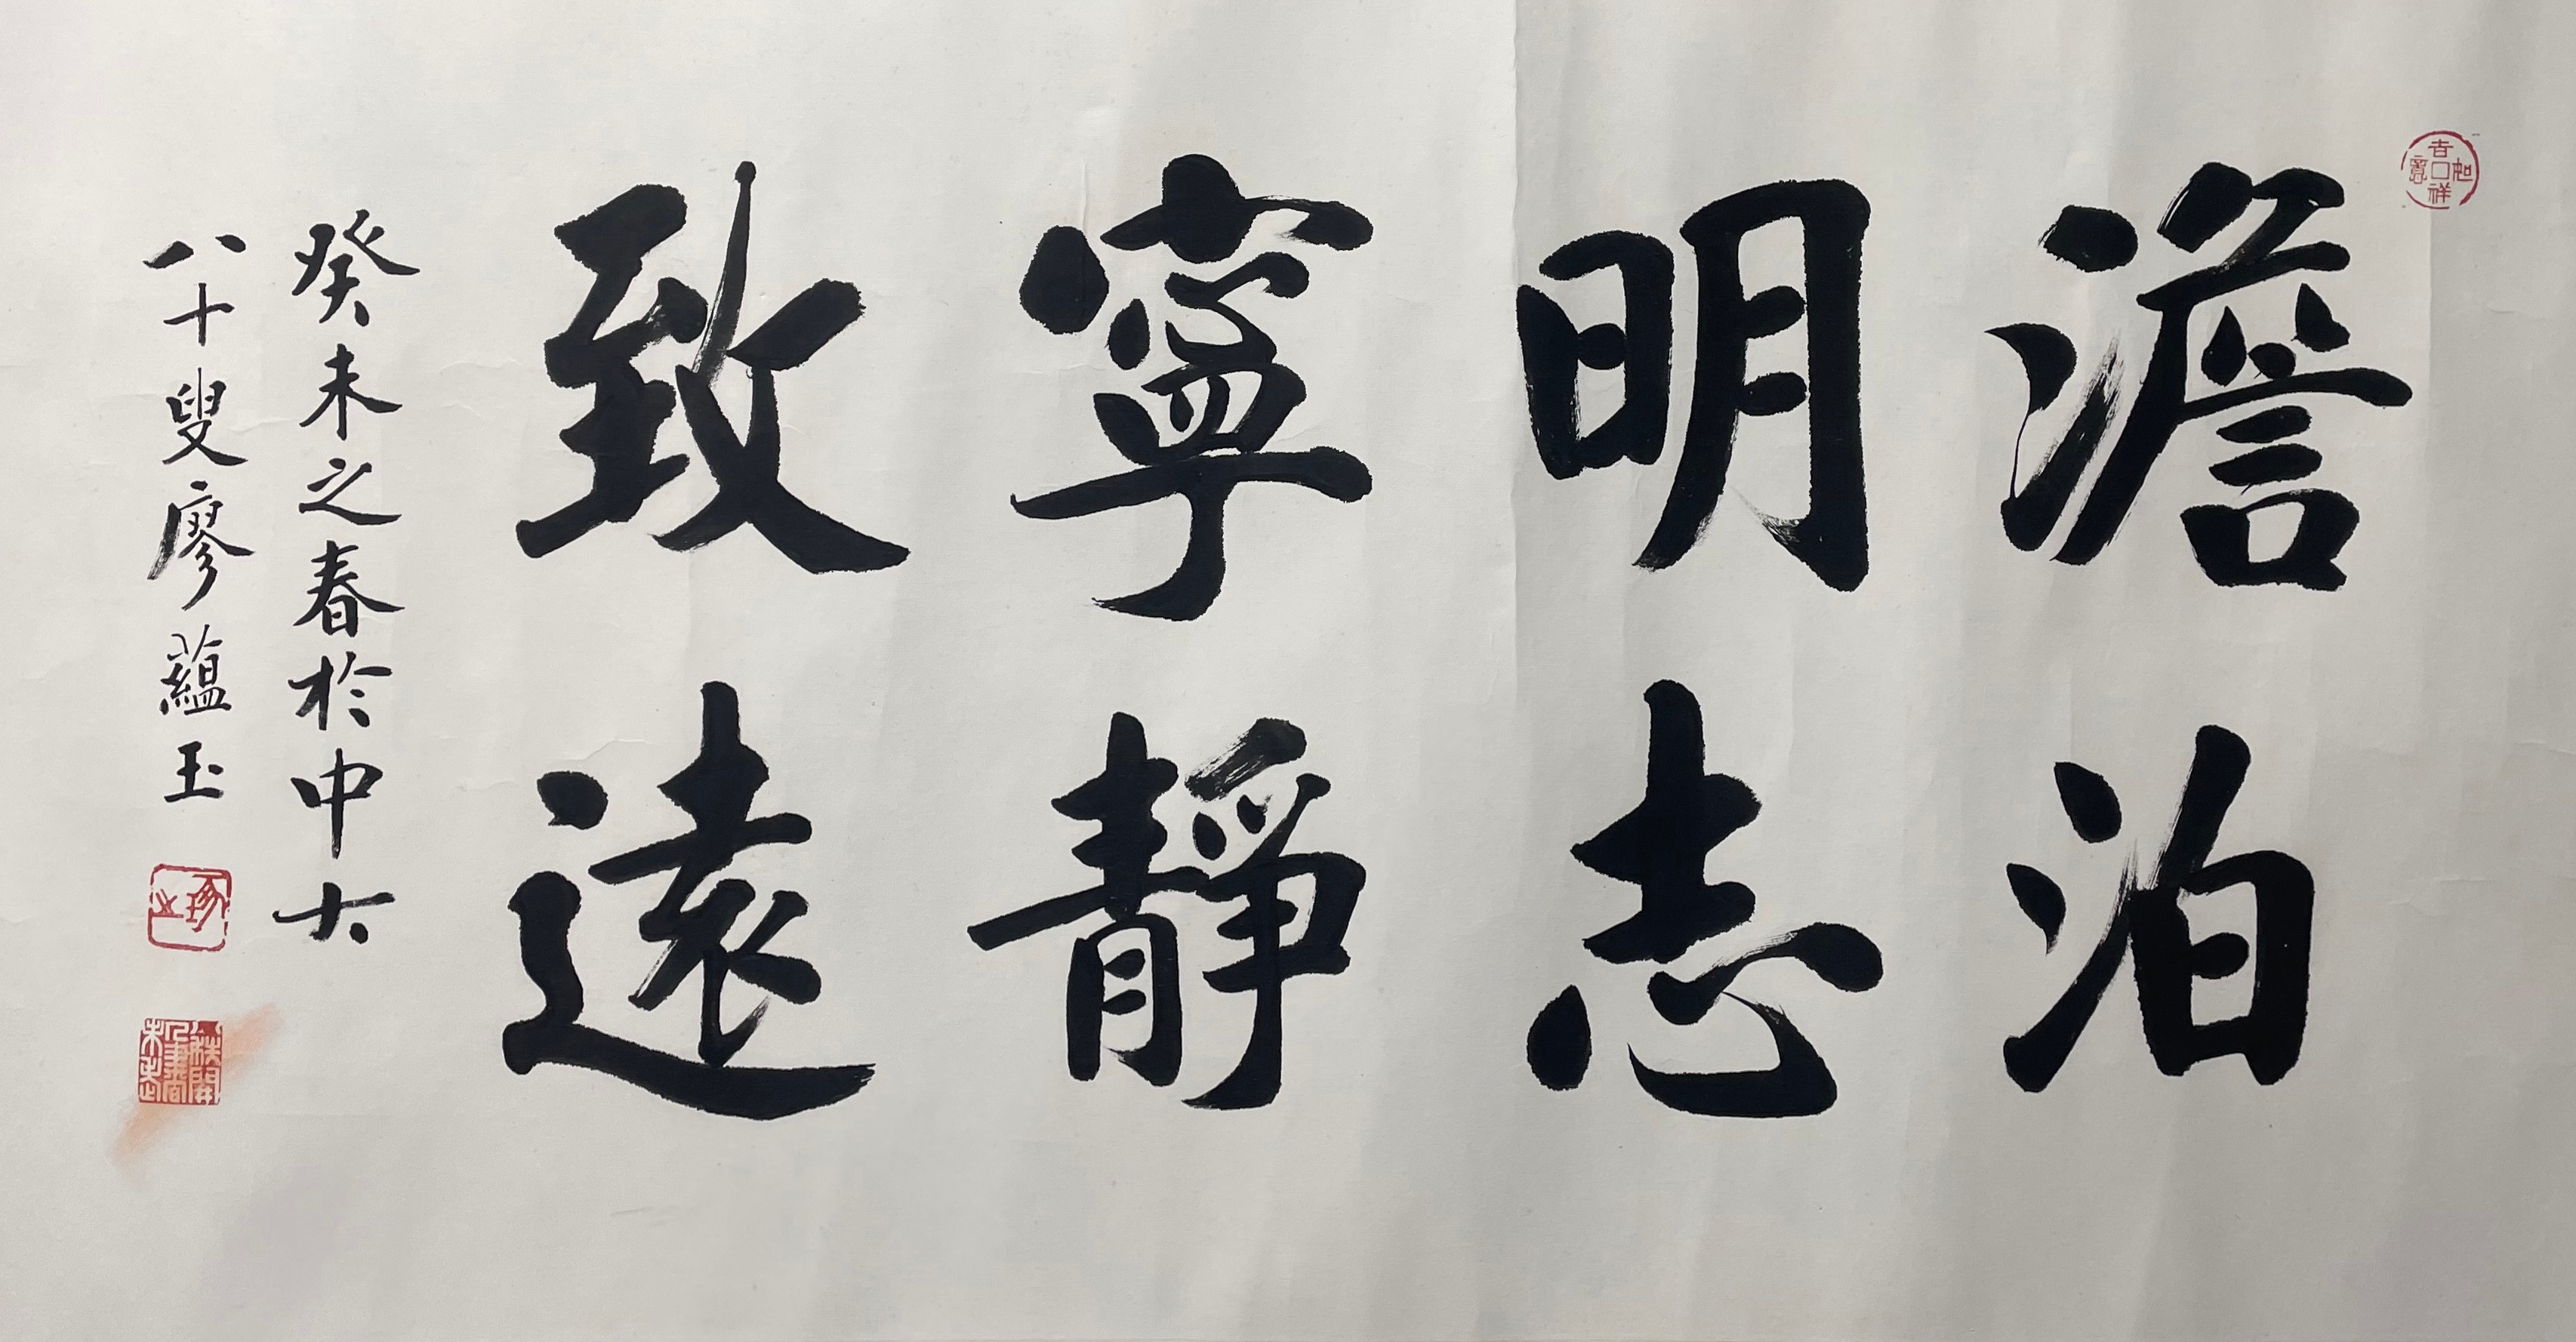 吉祥如意
澹泊
明志
寧靜
致遠
癸未之春於中大
八十叟廖蘊玉